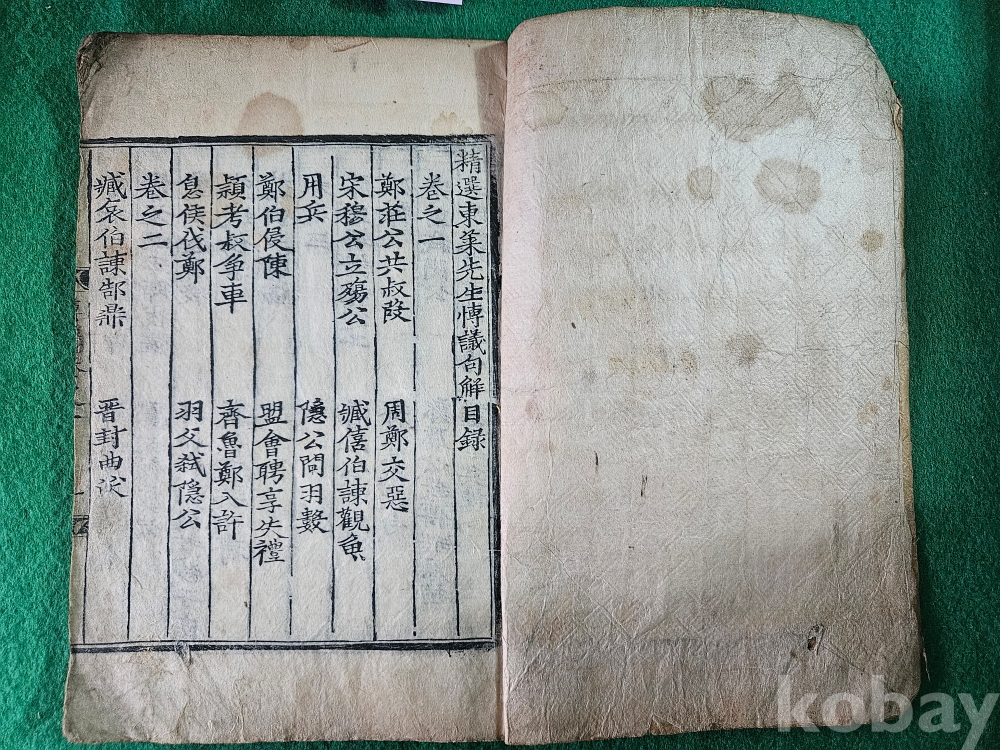 精選東萊先生博議句解目録
卷之一
鄭莊公共叔段 周鄭交惡
宋穆公立殤公 臧僖伯諫觀魚
用兵 隱公問羽數
鄭伯侵陳 盟會聘享失禮
頴考叔争車 齊魯鄭入許
息侯伐鄭 羽父弑隱公
卷之二
臧哀伯諫郜鼎 晋封曲沃
kobay